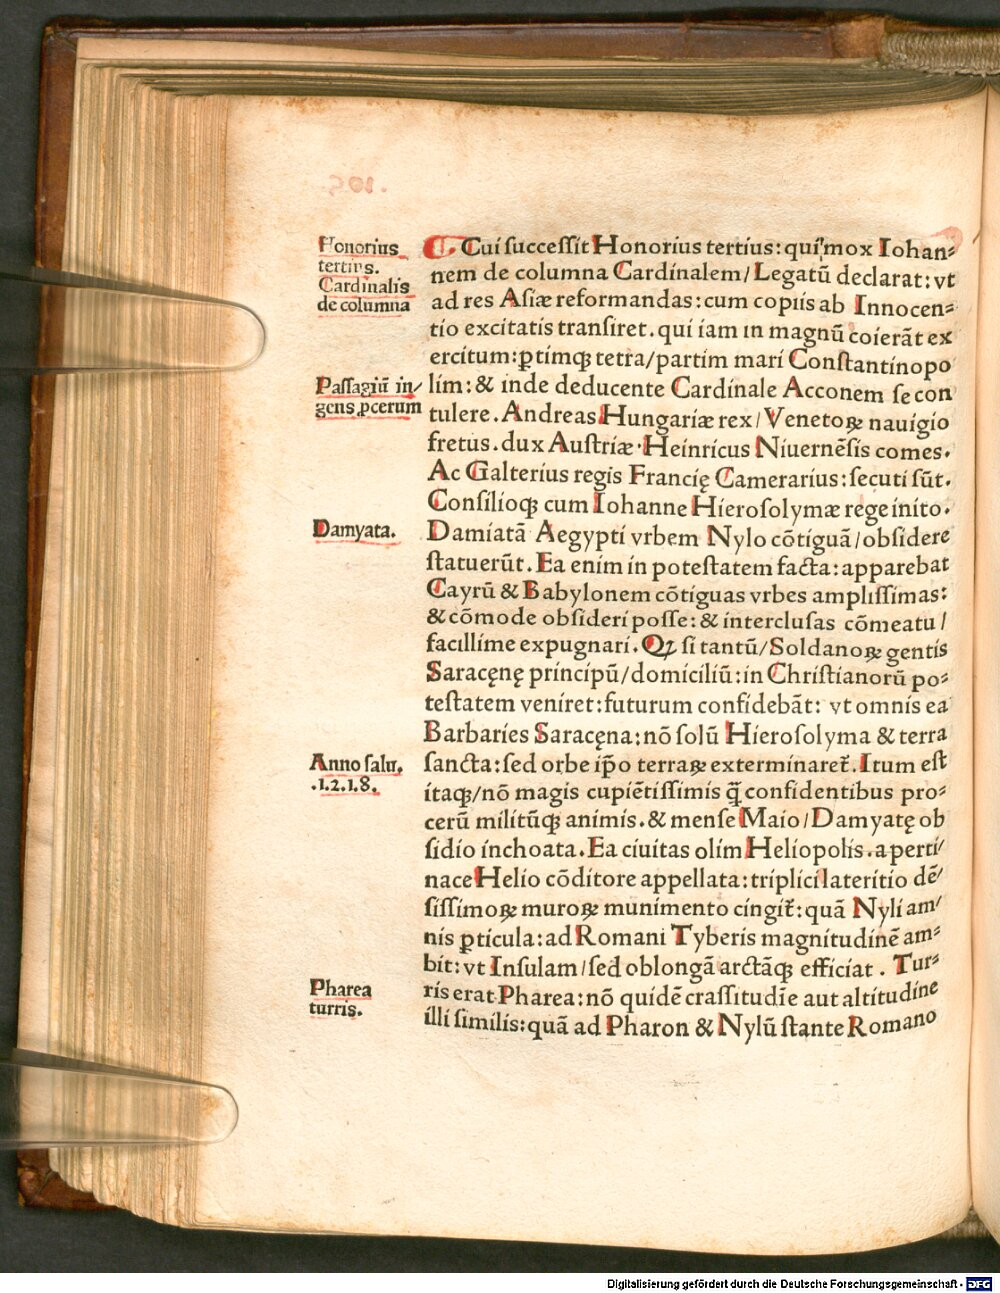 Honorius
tertius.
Cardinalis
de columna
Passagiũ in/
gens ꝓcerum
Damyata.
Anno salu.
.1.2.1.8.
Pharea
turris.
C Cui successit Honorius tertius: qui mox Iohan⸗
nem de columna Cardinalem/Legatũ declarat: vt
ad res Asiæ reformandas: cum copiis ab Innocen⸗
tio excitatis transiret. qui iam in magnũ coierãt ex
ercitum: ꝑtimqꝫ tetra/partim mari Constantinopo
lim: & inde deducente Cardinale Acconem se con
tulere. Andreas Hungariæ rex/Venetoꝝ nauigio
fretus. dux Austriæ. Heinricus Niuernẽsis comes.
Ac Galterius regis Francię Camerarius: secuti sũt.
Consilioqꝫ cum Iohanne Hierosolymæ rege inito.
Damiatã Aegypti vrbem Nylo cõtiguã/obsidere
statuerũt. Ea enim in potestatem facta: apparebat
Cayrũ & Babylonem cõtiguas vrbes amplissimas:
& cõmode obsideri posse: & interclusas cõmeatu/
facillime expugnari. Qꝫ si tantũ/Soldanoꝝ gentis
Saracęnę principũ/domiciliũ: in Christianorũ po⸗
testatem veniret: futurum confidebãt: vt omnis ea
Barbaries Saracęna: nõ solũ Hierosolyma & terra
sancta: sed orbe ip̃o terraꝝ exterminaret̃. Itum est
itaqꝫ/nõ magis cupiẽtissimis q̃ confidentibus pro⸗
cerũ militũqꝫ animis. & mense Maio/Damyatę ob
sidio inchoata. Ea ciuitas olim Heliopolis. a perti/
nace Helio cõditore appellata: triplici lateritio dẽ/
sissimoꝝ muroꝝ munimento cingit̃: quã Nyli am/
nis ꝑticula: ad Romani Tyberis magnitudinẽ am⸗
bit: vt Insulam/sed oblongã arctãqꝫ efficiat. Tur⸗
ris erat Pharea: nõ quidẽ crassitudĩe aut altitudine
illi similis: quã ad Pharon & Nylũ stante Romano
Digitalisierung gefördert durch die Deutsche Forschungsgemeinschaft - DFG